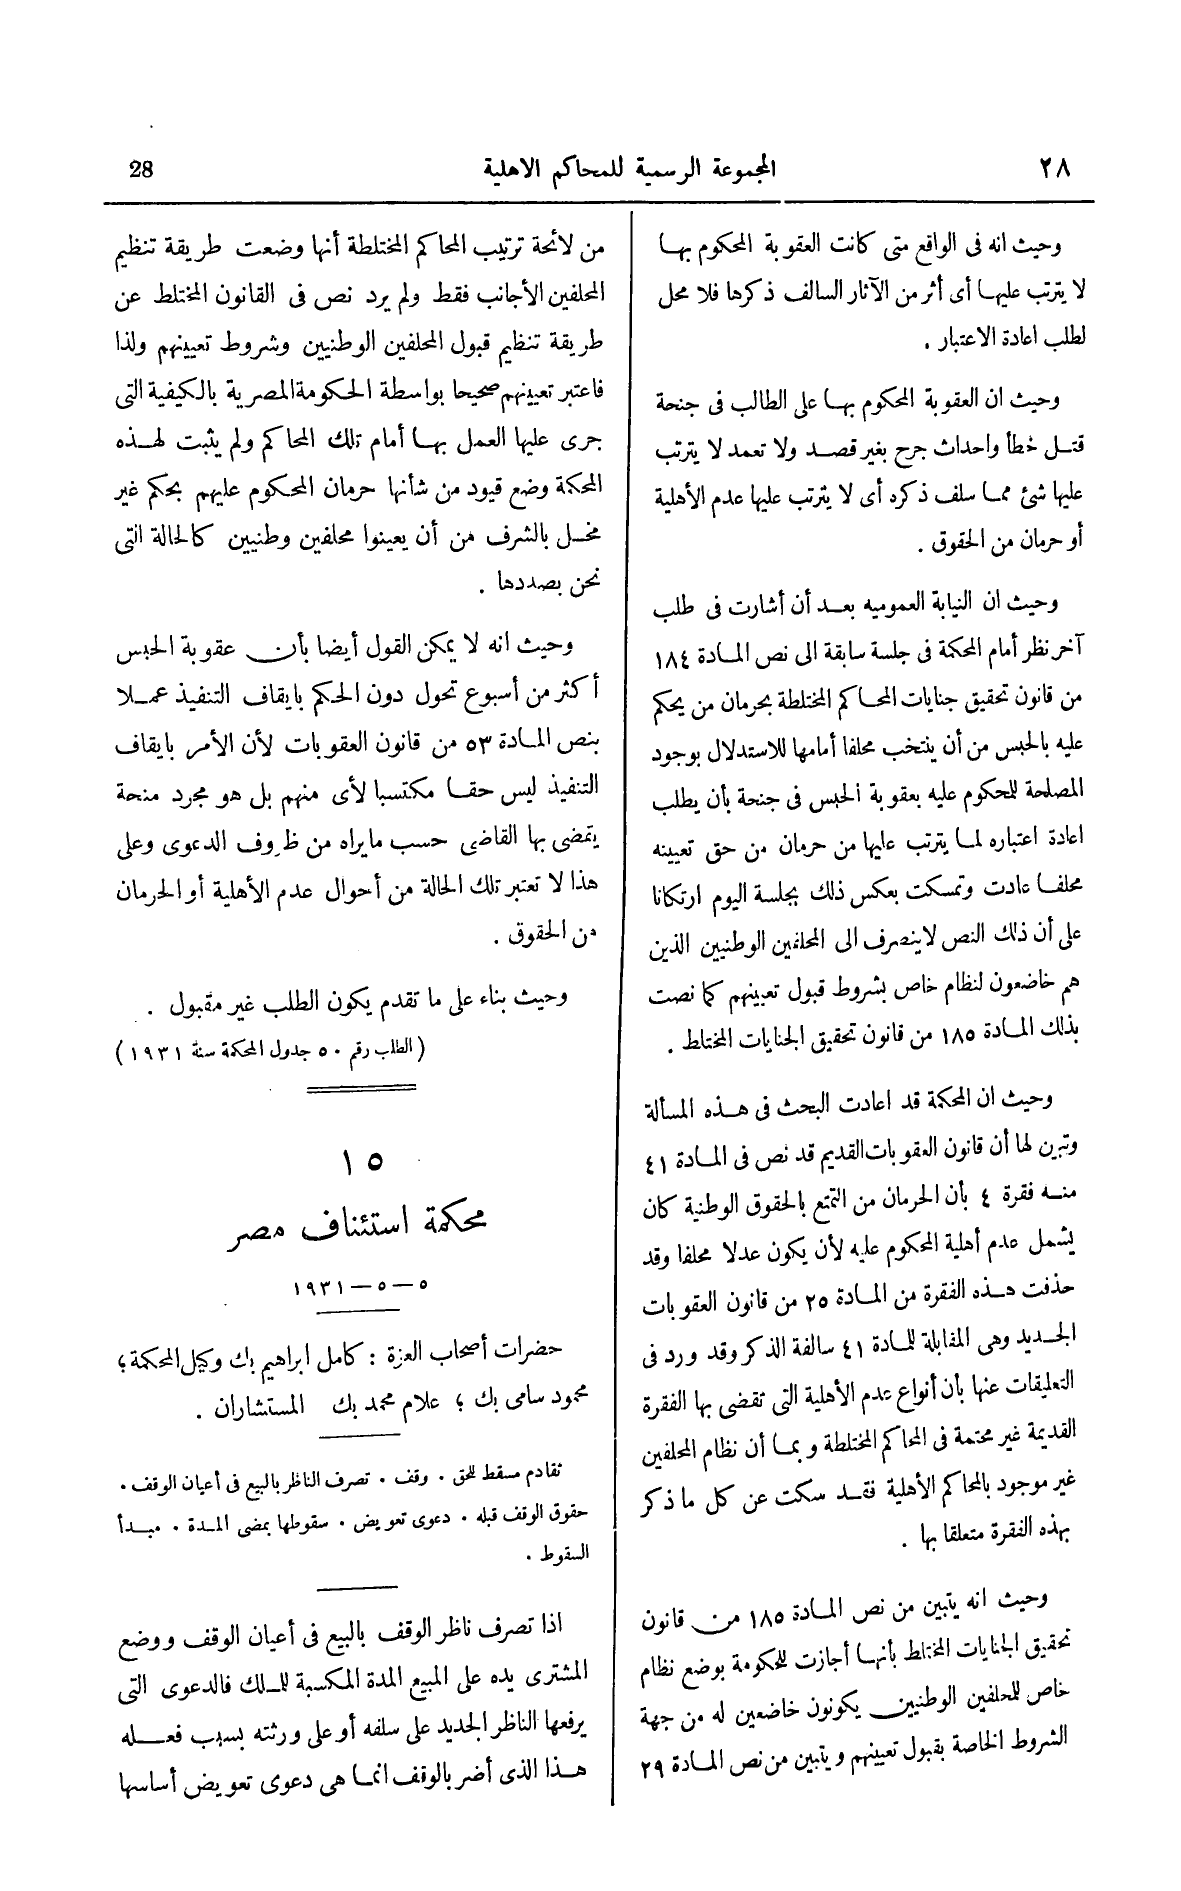 ٢٨ المجموعة الرسمية للمحاكم الاهلية 28
وحيث انه فى الواقع متى كانت العقوبة المحكوم بها
لا يترتب عليها أى أثر من الآثار السالف ذكرها فلا محل
لطلب اعادة الاعتبار .
وحيث ان العقوبة المحكوم بها على الطالب فى جنحة
قتل خطأ واحداث جرح بغير قصد ولا تعمد لا يترتب
عليها شئ مما سلف ذكره أى لا يترتب عليها عدم الأهلية
أو حرمان من الحقوق .
وحيث ان النيابة العموميه بعد أن أشارت فى طلب
آخر نظر أمام المحكمة فى جلسة سابقة الى نص المادة ١٨٤
من قانون تحقيق جنايات المحاكم المختلطة بحرمان من يحكم
عليه بالحبس من أن ينتخب محلفا أمامها للاستدلال بوجود
المصلحة للمحكوم عليه بعقوبة الحبس فى جنحة بأن يطلب
اعادة اعتباره لما يترتب عليها من حرمان من حق تعيينه
محلفا عادت وتمسكت بعكس ذلك بجلسة اليوم ارتكانا
على أن ذلك النص لاينصرف الى المحلفين الوطنيين الذين
هم خاضعون لنظام خاص بشروط قبول تعيينهم كما نصت
بذلك المادة ١٨٥ من قانون تحقيق الجنايات المختلط .
وحيث ان المحكمة قد اعادت البحث فى هذه المسألة
وتبين لها أن قانون العقوبات القديم قد نص فى المادة ٤١
منه فقرة ٤ بأن الحرمان من التمتع بالحقوق الوطنية كان
يشمل عدم أهلية المحكوم عليه لأن يكون عدلا محلفا وقد
حذفت هذه الفقرة من المادة ٢٥ من قانون العقوبات
الجديد وهى المقابلة للمادة ٤١ سالفة الذكر وقد ورد فى
التعليقات عنها بأن أنواع عدم الأهلية التى تقضى بها الفقرة
القديمة غير محتمة فى المحاكم المختلطة وبما أن نظام المحلفين
غير موجود بالمحاكم الأهلية فقد سكت عن كل ما ذكر
بهذه الفقرة متعلقا بها .
وحيث انه يتبين من نص المادة ١٨٥ من قانون
تحقيق الجنايات المختلط بأنها أجازت للحكومة بوضع نظام
خاص للمحلفين الوطنيين يكونون خاضعين له من جهة
الشروط الخاصة بقبول تعيينهم ويتبين من نص المادة ٢٩
من لائحة ترتيب المحاكم المختلطة أنها وضعت طريقة تنظيم
المحلفين الأجانب فقط ولم يرد نص فى القانون المختلط عن
طريقة تنظيم قبول المحلفين الوطنيين وشروط تعيينهم ولذا
فاعتبر تعيينهم صحيحا بواسطة الحكومة المصرية بالكيفية التى
جرى عليها العمل بها أمام تلك المحاكم ولم يثبت لهذه
المحكمة وضع قيود من شأنها حرمان المحكوم عليهم بحكم غير
مخل بالشرف من أن يعينوا محلفين وطنيين كالحالة التى
نحن بصددها .
وحيث انه لا يمكن القول أيضا بأن عقوبة الحبس
أكثر من أسبوع تحول دون الحكم بايقاف التنفيذ عملا
بنص المادة ٥٣ من قانون العقوبات لأن الأمر بايقاف
التنفيذ ليس حقا مكتسبا لأى منهم بل هو مجرد منحة
يتمضى بها القاضى حسب مايراه من ظروف الدعوى وعلى
هذا لا تعتبر تلك الحالة من أحوال عدم الأهلية أو الحرمان
من الحقوق .
وحيث بناء على ما تقدم يكون الطلب غير مقبول .
( الطلب رقم ٥٠ جدول المحكمة سنة ١٩٣١ )
١٥
محكمة استئناف مصر
٥ — ٥ — ١٩٣١
حضرات أصحاب العزة : كامل ابراهيم بك وكيل المحكمة ؛
محمود سامى بك ؛ علام محمد بك المستشاران .
تقادم مسقط للحق . وقف . تصرف الناظر بالبيع فى أعيان الوقف .
حقوق الوقف قبله . دعوى تعويض . سقوطها بمضى المدة . مبدأ
السقوط .
اذا تصرف ناظر الوقف بالبيع فى أعيان الوقف ووضع
المشترى يده على المبيع المدة المكسبة للملك فالدعوى التى
يرفعها الناظر الجديد على سلفه أو على ورثته بسبب فعله
هذا الذى أضر بالوقف انما هى دعوى تعويض أساسها